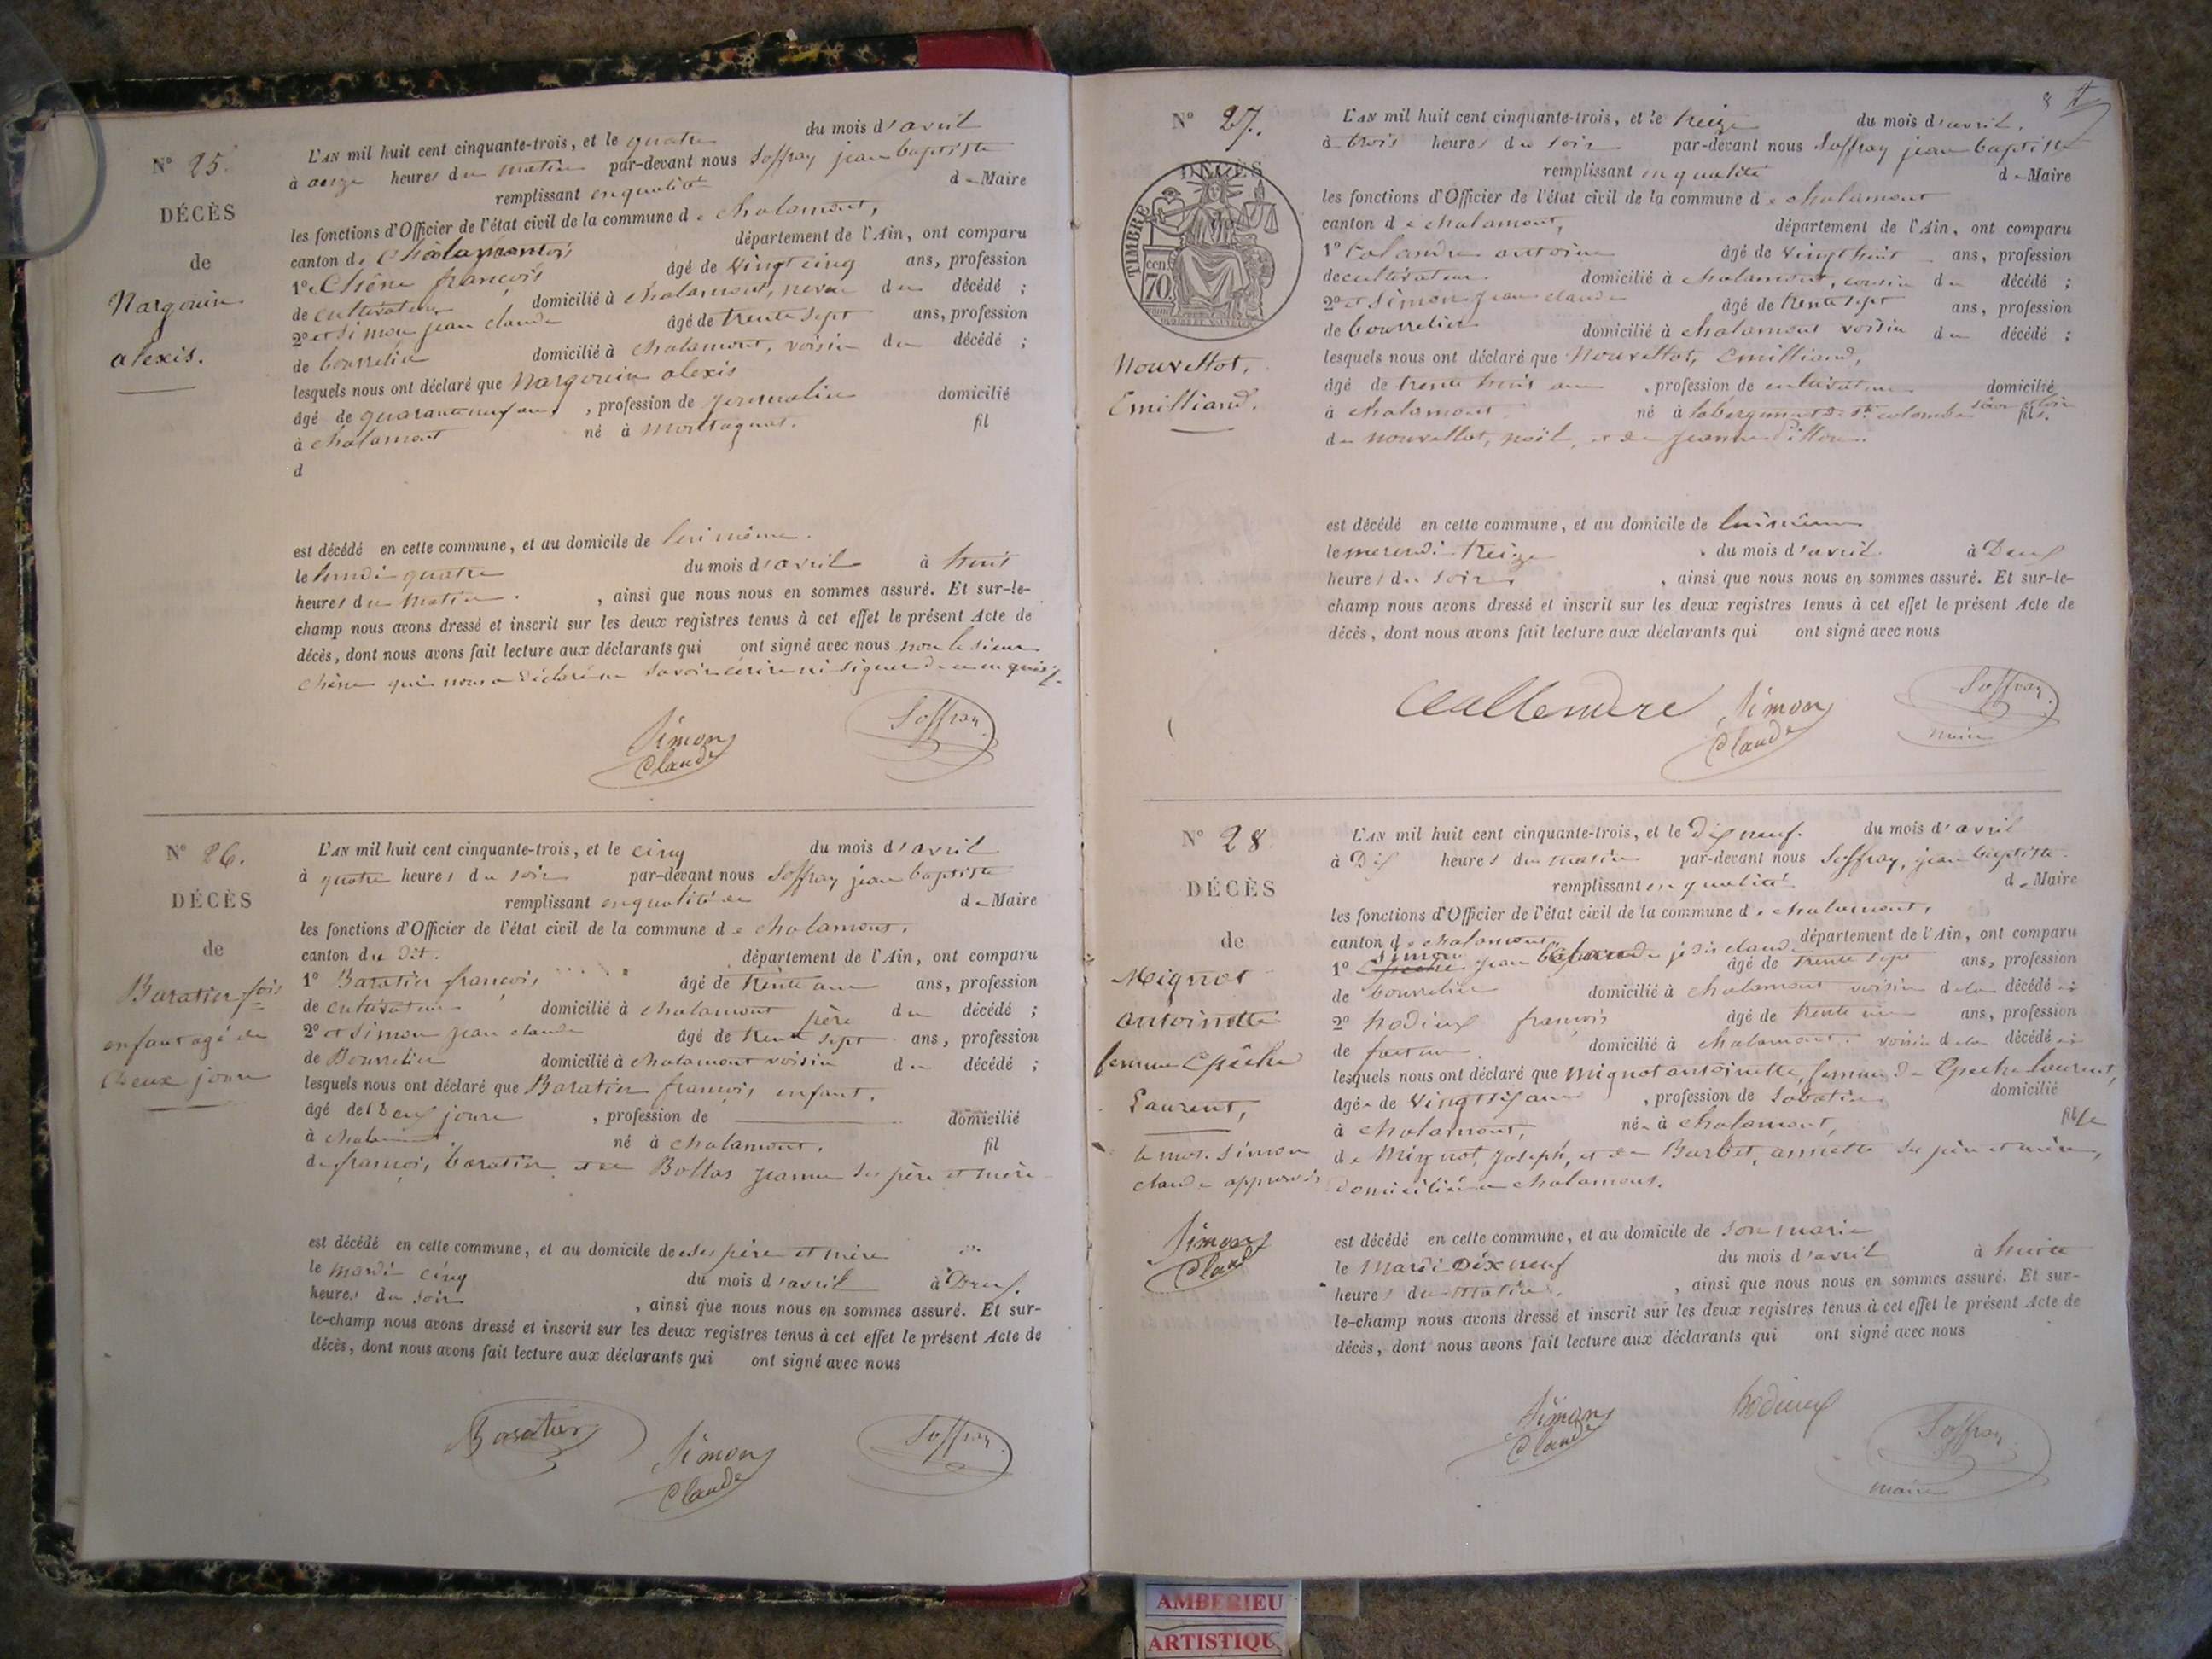 N° 25.
DÉCÈS
de
Nargouin
alexis.
L'AN mil huit cent cinquante-trois, et le quatre du mois d'avril
à onze heures du matin par-devant nous Soffray jean baptiste
remplissant en qualité de Maire
les fonctions d'Officier de l'état civil de la commune de chalamont,
canton de Chalamont département de l'Ain, ont comparu
1° Chêne françois âgé de vingt cinq ans, profession
de cultivateur domicilié à chalamont, neveu du décédé ;
2° et Simon jean claude âgé de trente sept ans, profession
de bourrelier domicilié à chalamont, voisin du décédé ;
lesquels nous ont déclaré que Nargouin alexis
âgé de quarante neuf ans, profession de journalier domicilié
à chalamont né à montagnat. fil
d
est décédé en cette commune, et au domicile de lui même.
le lundi quatre du mois d'avril à huit
heures du matin. , ainsi que nous nous en sommes assuré. Et sur-le-
champ nous avons dressé et inscrit sur les deux registres tenus à cet effet le présent Acte de
décès, dont nous avons fait lecture aux déclarants qui ont signé avec nous non le sieur
Chêne qui nous a déclaré ne savoir écrire ni signer de ce enquis
Simon
Claude
Soffray
N° 26.
DÉCÈS
de
Baratier fois
enfant agé de
deux jours
L'AN mil huit cent cinquante-trois, et le cinq du mois d'avril
à quatre heures du soir par-devant nous Soffray jean baptiste
remplissant en qualité de de Maire
les fonctions d'Officier de l'état civil de la commune de chalamont.
canton du dit. département de l'Ain, ont comparu
1° Baratier françois âgé de trente ans ans, profession
de cultivateur domicilié à chalamont père du décédé ;
2° et Simon jean claude âgé de trente sept ans, profession
de Bourrelier domicilié à chalamont voisin du décédé ;
lesquels nous ont déclaré que Baratier françois, enfant,
âgé de Deux jours , profession de domicilié
à né à chalamont. fil
de françois baratier et de Bollas jeanne ses père et mère
est décédé en cette commune, et au domicile de ses père et mère
le mardi cinq du mois d'avril à Deux
heures du soir , ainsi que nous nous en sommes assuré. Et sur-
le-champ nous avons dressé et inscrit sur les deux registres tenus à cet effet le présent Acte de
décès, dont nous avons fait lecture aux déclarants qui ont signé avec nous
Baratier
Simon
Claude
Soffray
8
N° 27.
DÉCÈS
TIMBRE
70 cen
Nouvellot,
Emilliand.
L'AN mil huit cent cinquante-trois, et le treize du mois d'avril.
à trois heures du soir par-devant nous Soffray jean baptiste
remplissant en qualité de Maire
les fonctions d'Officier de l'état civil de la commune de chalamont
canton de chalamont, département de l'Ain, ont comparu
1° Calandre antoine âgé de vingt huit ans, profession
de cultivateur. domicilié à chalamont, cousin du décédé ;
2° et Simon jean claude âgé de trente sept ans, profession
de bourrelier domicilié à chalamont voisin du décédé ;
lesquels nous ont déclaré que Nouvellot, Emilliand,
âgé de trente trois ans , profession de cultivateur domicilié
à chalamont né à fils.
de nouvellot, noël, et de jeanne
est décédé en cette commune, et au domicile de lui même
le mercredi treize du mois d'avril à Deux
heures du soir , ainsi que nous nous en sommes assuré. Et sur-le-
champ nous avons dressé et inscrit sur les deux registres tenus à cet effet le présent Acte de
décès, dont nous avons fait lecture aux déclarants qui ont signé avec nous
Callendre
Simon
Claude
Soffray
maire
N° 28
DÉCÈS
de
Mignot
antoinette
femme Epêche
Laurent,
le mot Simon
claude approuvé
Simon
Claude
L'AN mil huit cent cinquante-trois, et le Dix neuf. du mois d'avril
à Dix heures du matin par-devant nous Soffray, jean baptiste
remplissant en qualité de Maire
les fonctions d'Officier de l'état civil de la commune de chalamont,
canton de chalamont département de l'Ain, ont comparu
1° Simon jean je dis claude âgé de trente sept ans, profession
de bourrelier domicilié à chalamont voisin de la décédée ;
2° hodieux françois âgé de trente ans, profession
de domicilié à chalamont. voisin de la décédée
lesquels nous ont déclaré que mignot antoinette, femme de Epeche Laurent,
âgée de vingt six ans , profession de domicilié
à chalamont, née à chalamont, fille
de Mignot, joseph, et de Barbet, annette ses père et mère,
domiciliés a chalamont.
est décédé en cette commune, et au domicile de son marie
le Mardi Dix neuf du mois d'avril à huit
heures du matin, , ainsi que nous nous en sommes assuré. Et sur-
le-champ nous avons dressé et inscrit sur les deux registres tenus à cet effet le présent Acte de
décès, dont nous avons fait lecture aux déclarants qui ont signé avec nous
Simon
Claude
hodieux
Soffray
maire
AMBERIEU
ARTISTIQU